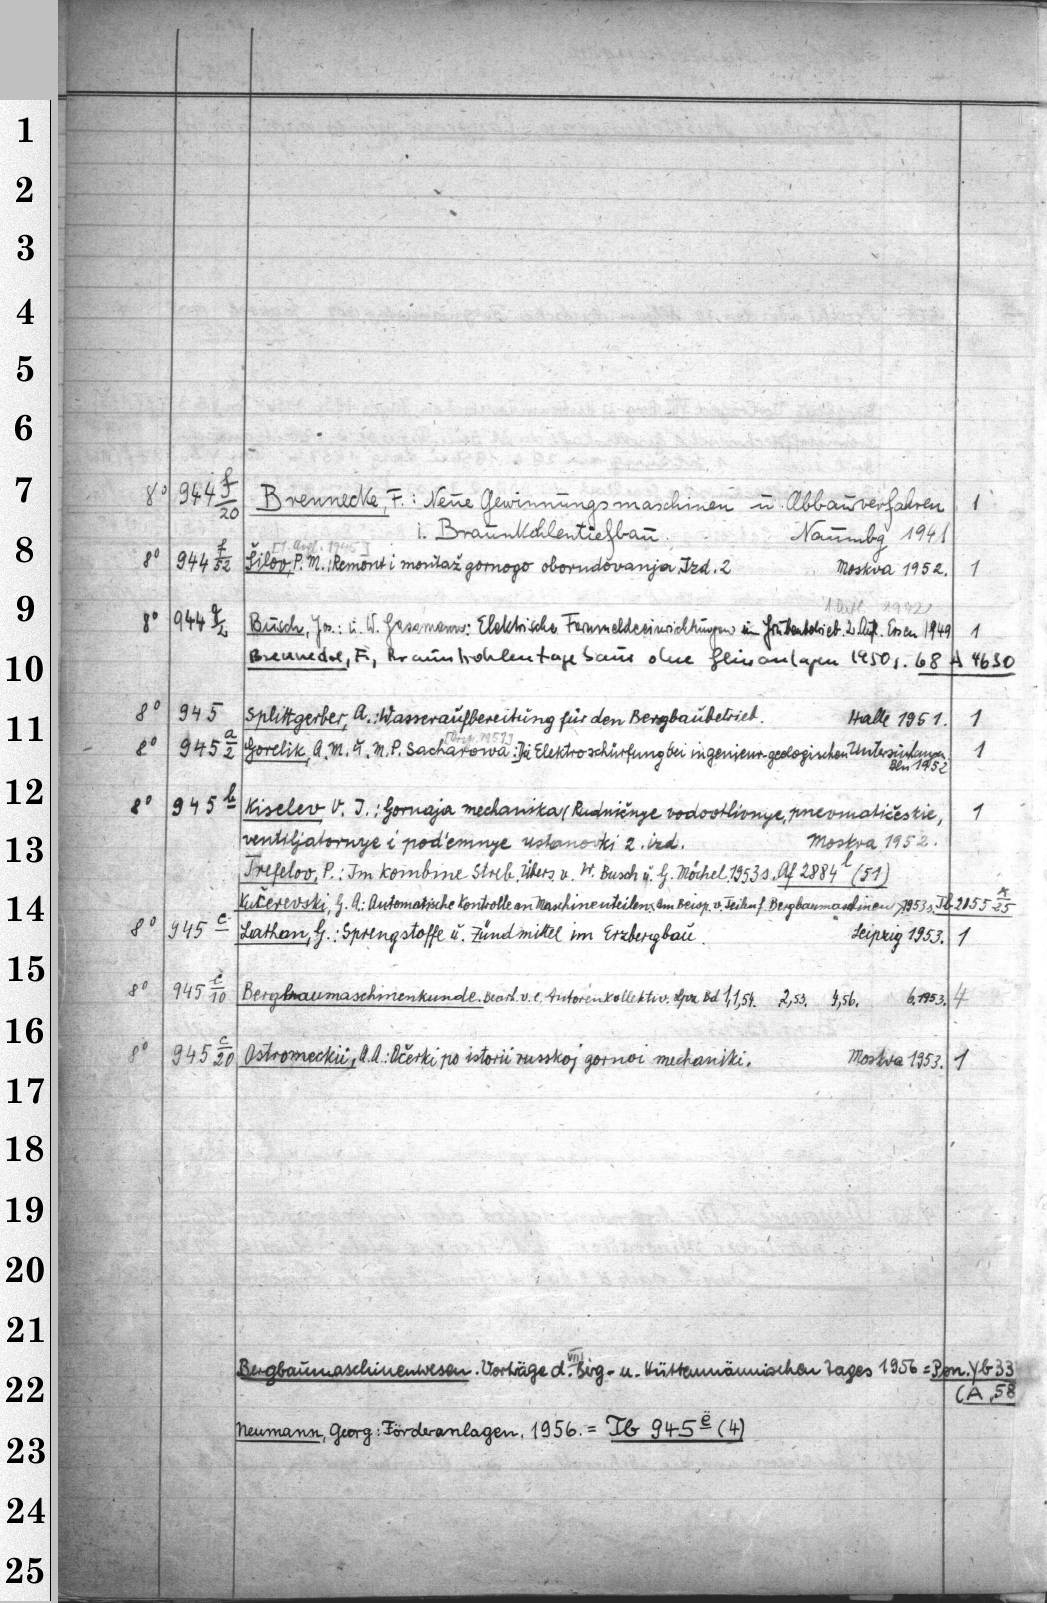 1
2
3
4
5
6
7
8° 944 f/20 Brennecke, F.: Neue Gewinnungsmaschinen u. Abbauverfahren 1
i. Braunkohlentiefbau. Naumbg 1941
8
8° 944 f/52 Šilov, P. M.: Remont i montaž gornogo oborudovanja. Izd. 2 Moskva 1952. 1
9
8° 944 g/2 Busch, Jos.: u. W. Gassmann: Elektrische Fernmeldeeinrichtungen im Grubenbetrieb. 2. Aufl. Essen 1949 1
10
Brennecke, F., Braunkohlentagebau ohne 1950 s. 68 A 4630
8° 945 Splittgerber, A.: Wasseraufbereitung für den Bergbaubetrieb. Halle 1951. 1
11
8° 945 a/2 Gorelik, A. M. u. M. P. Sacharowa: Die Elektroschürfung bei ingenieur-geologischen Untersuchungen. 1
Bln 1952
12
8° 945 b Kiselev V. I.: Gornaja mechanika (Rudničnye vodootlivnye, pnevmatičeskie, 1
13
ventiljatornye i pod'emnye ustanovki 2. izd. Moskva 1952.
Trefelov, P.: Im Kombine Streb. Übers. v. W. Busch u. G. Möchel. 1953 s. Af 2884 l (51)
14
Kučerevski, G. A.: Automatische Kontrolle an Maschinenteilen am Beisp. v. Teilen f. Bergbaumaschinen, 1953 s. Tb 2155 x/25
8° 945 c Lathan, G.: Sprengstoffe u. Zündmittel im Erzbergbau. Leipzig 1953. 1
15
8° 945 c/10 Bergbaumaschinenkunde. Bearb. v. e. Autorenkollektiv. Lpz Bd 1,1,54. 2,53. 4,56. 6.1953. 4
16
8° 945 c/20 Ostromeckii, A. A.: Očerki po istorii russkoj gornoi mechaniki. Moskva 1953. 1
17
18
19
20
21
22
Bergbaumaschinenwesen. Vorträge d. VIII Berg- u. Hüttenmännischen Tages 1956 = Pon. Yb 33
(A, 58
23
Neumann, Georg: Förderanlagen. 1956. = Tb 945 e (4)
24
25